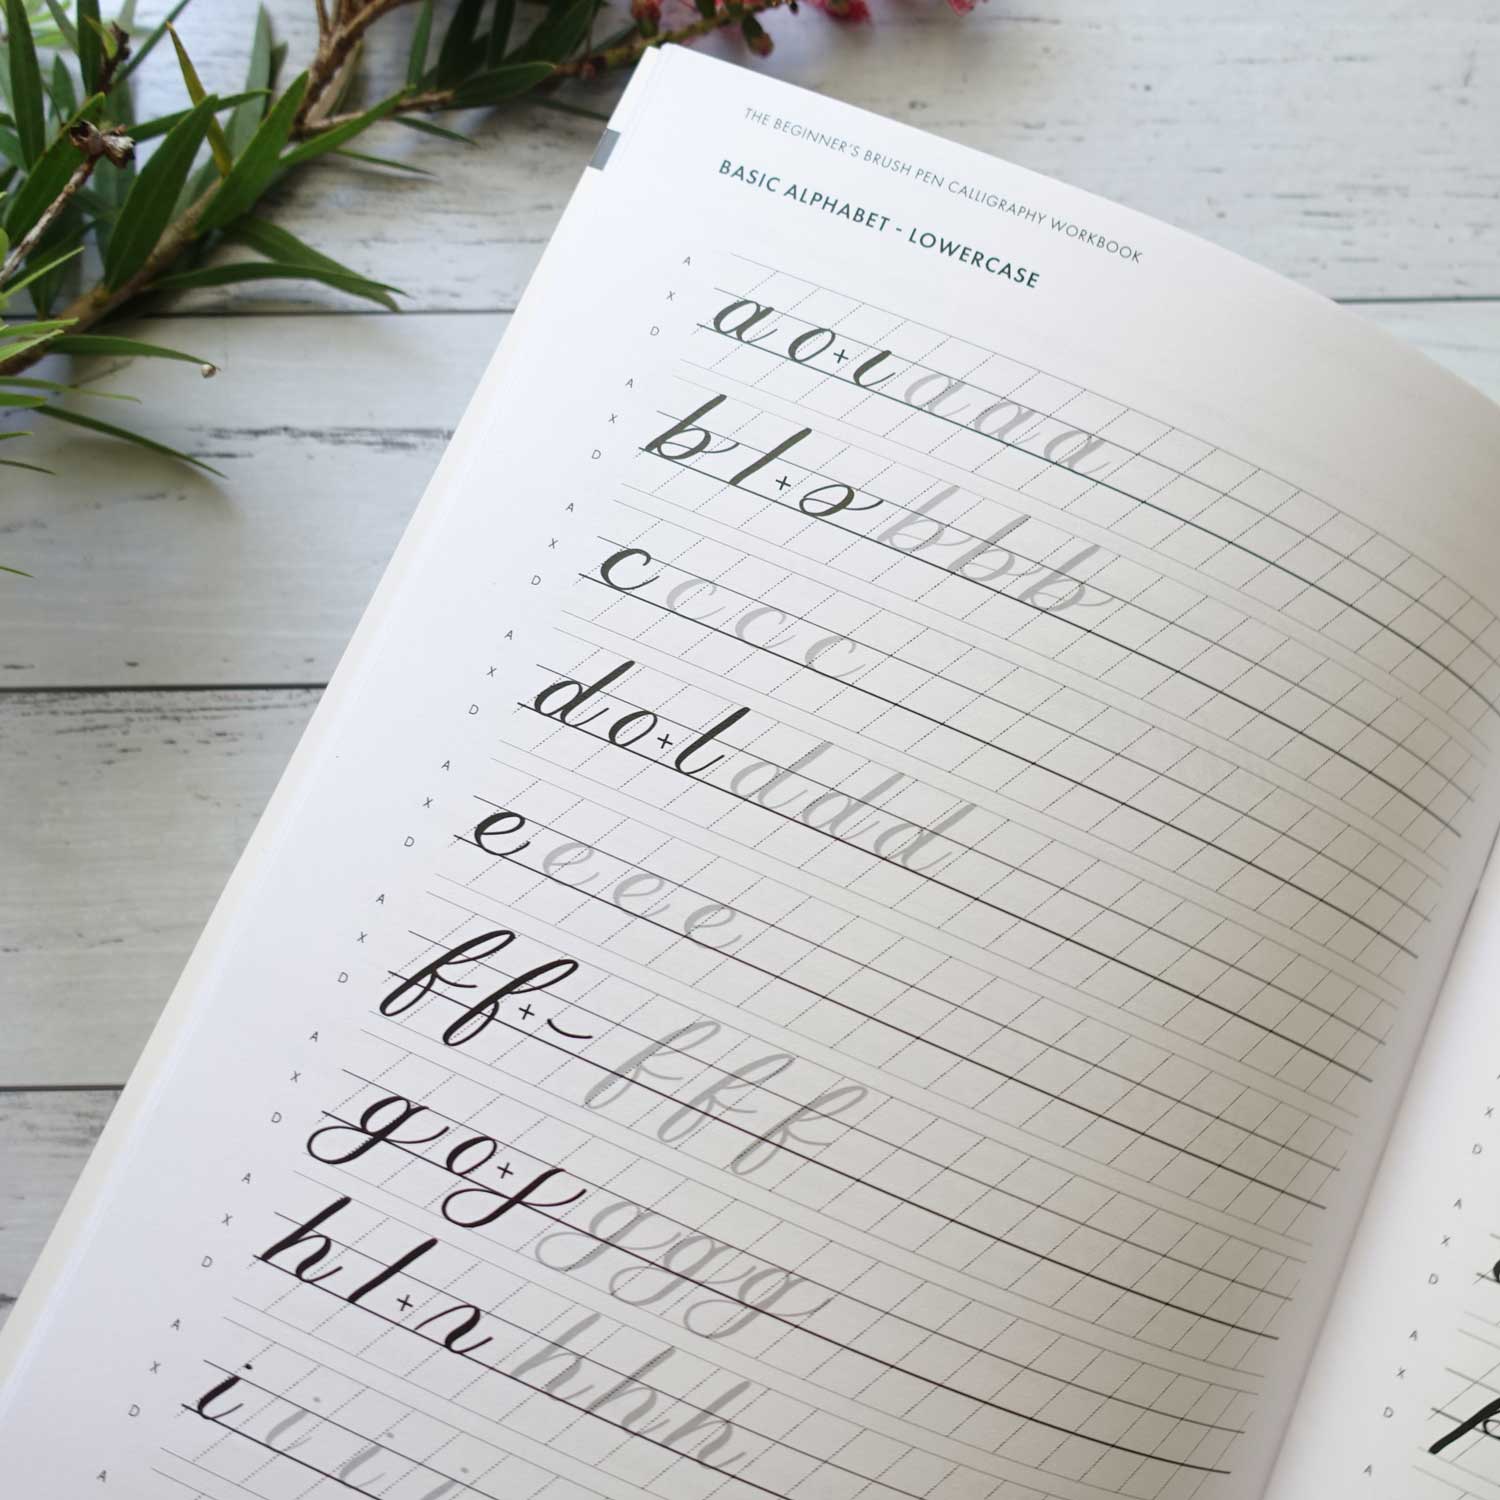 THE BEGINNER'S BRUSH PEN CALLIGRAPHY WORKBOOK
BASIC ALPHABET - LOWERCASE
A
X a o + ι a a a
D
A
X b l + b b b
D
A
X c c c c
D
A
X d o + l d d d
D
A
X e e e e
D
A
X f f + - f f f
D
A
X g o + g g g
D
A
X h l + h h h
D
A
X i i i i
D
A
X
D
A
X
D
A
X
D
A